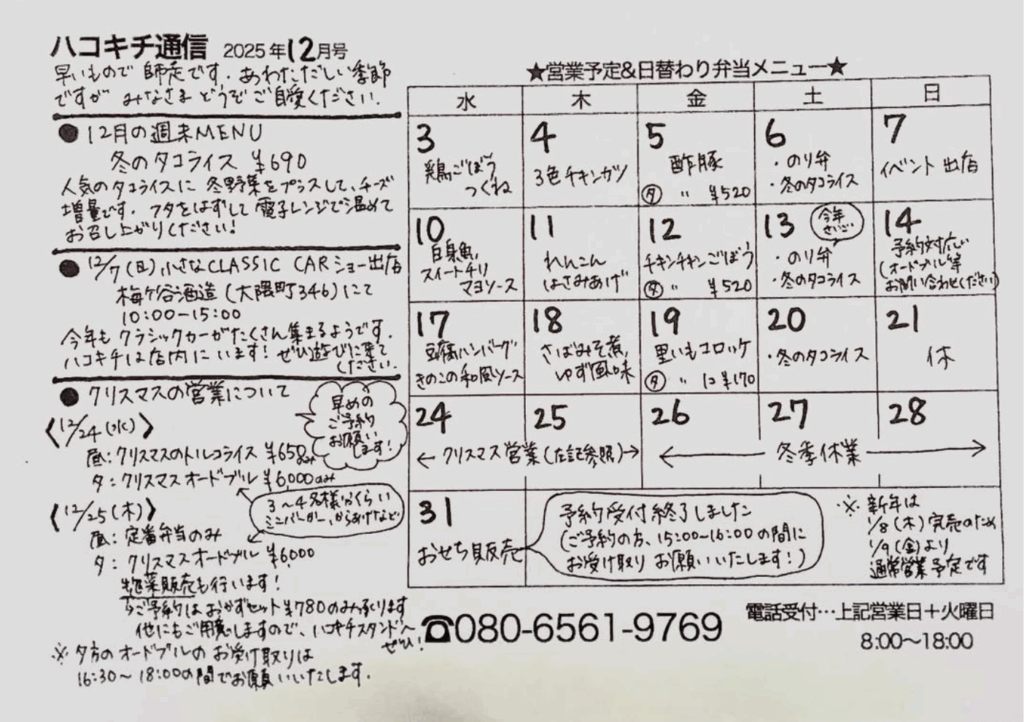 ハコキチ通信 2025年12月号
早いもので 師走です。あわただしい季節
ですが みなさま どうぞ ご自愛ください。
● 12月の週末MENU
冬のタコライス ¥690
人気のタコライスに 冬野菜をプラスして、チーズ
増量です。フタをはずして 電子レンジで温めて
お召し上がりください!
● 12/7(日)小さなCLASSIC CARショー出店
梅ケ谷酒造(大隈町346)にて
10:00-15:00
今年も クラシックカーがたくさん集まるようです。
ハコキチは店内にいます! ぜひ遊びに来て
ください。
● クリスマスの営業について
早めの
ご予約
お願い
します!
〈12/24(水)〉
昼:クリスマスのトルコライス ¥650のみ
夕:クリスマスオードブル ¥6,000のみ
3~4名様分くらい
ミニバーガー、からあげなど
〈12/25(木)〉
昼:定番弁当のみ
夕:クリスマスオードブル ¥6,000
惣菜販売も行います!
ご予約はおかずセット¥780のみ承ります
他にもご用意しますので、ハコキチスタンドへ
ぜひ!
※ 夕方のオードブルの お受け取りは
16:30~18:00の間でお願いいたします。
★営業予定&日替わり弁当メニュー★
水 木 金 土 日
3
鶏ごぼう
つくね
4
3色チキンカツ
5
酢豚
夕 〃 ¥520
6
・のり弁
・冬のタコライス
7
イベント出店
10
白身魚
スイートチリ
マヨソース
11
れんこん
はさみあげ
12
チキンチキンごぼう
夕 〃 ¥520
13
今年
さいご
・のり弁
・冬のタコライス
14
予約対応い
(オードブル等
お問い合わせください)
17
豆腐ハンバーグ
きのこの和風ソース
18
さばみそ煮
ゆず風味
19
里いもコロッケ
夕 〃 1コ¥170
20
・冬のタコライス
21
休
24 25 26 27 28
← クリスマス営業(左記参照) →
← 冬季休業 →
31
おせち販売
予約受付終了しました
(ご予約の方、15:00~16:00の間に
お受け取り お願いいたします!)
※ 新年は
1/8(木)完売のため
1/9(金)より
通常営業予定です
☎080-6561-9769
電話受付…上記営業日+火曜日
8:00~18:00